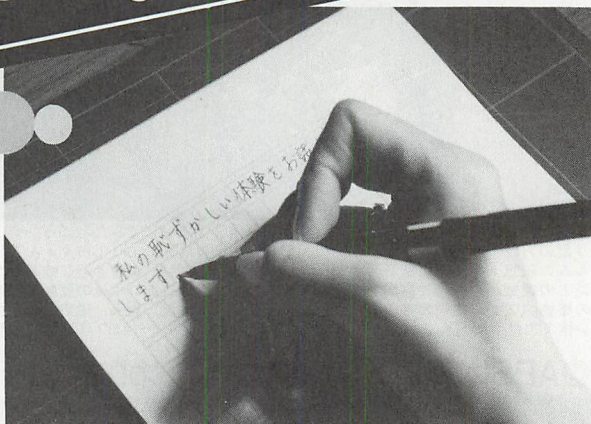 私の恥ずかしい体験をお話
します。